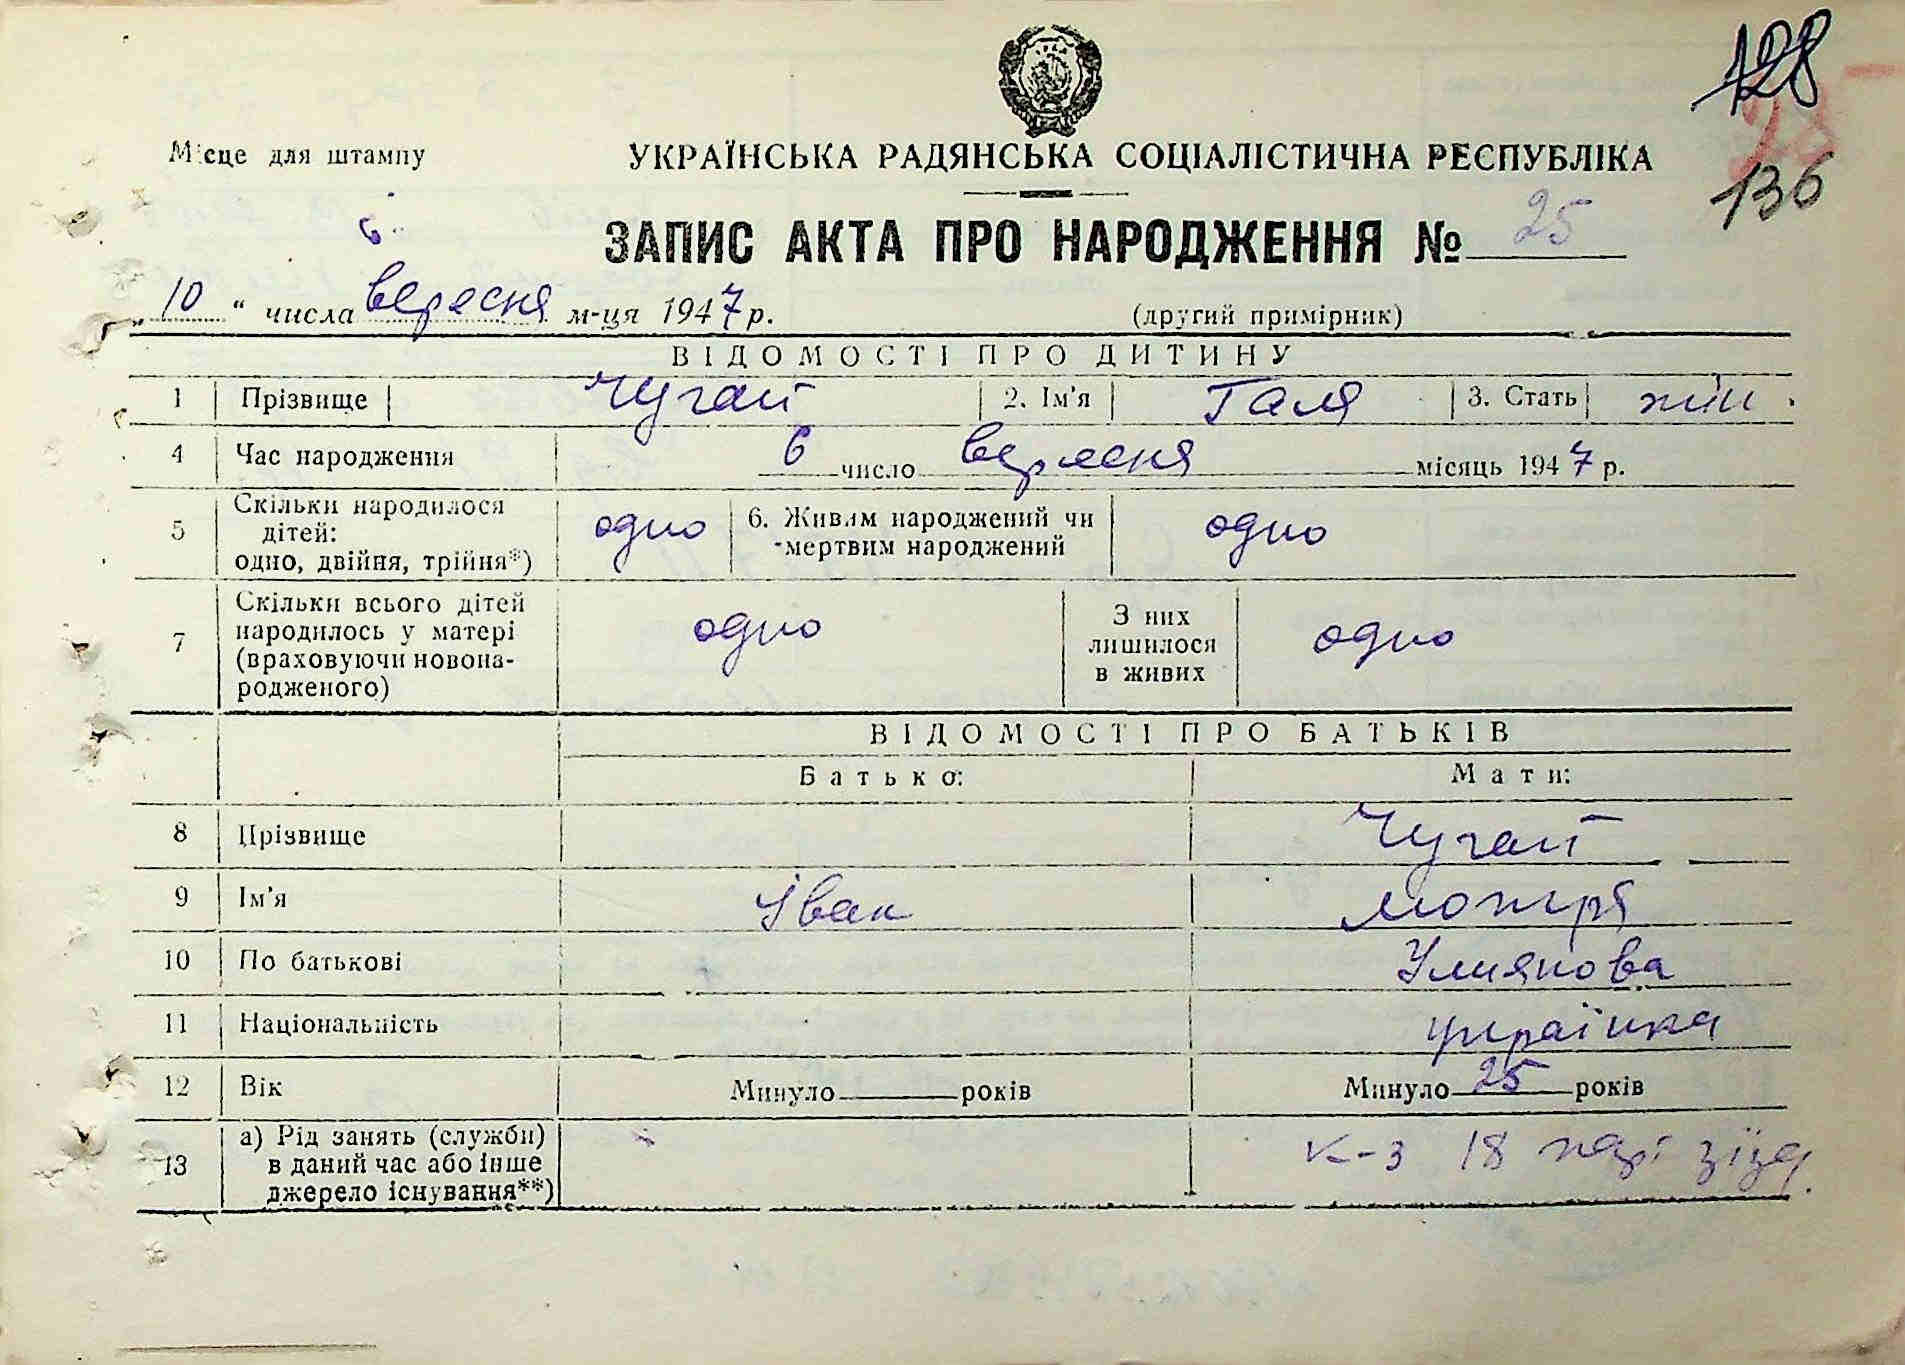 128
28
136
Місце для штампу
УКРАЇНСЬКА РАДЯНСЬКА СОЦІАЛІСТИЧНА РЕСПУБЛІКА
ЗАПИС АКТА ПРО НАРОДЖЕННЯ № 25
„10“ числа вересня м-ця 1947 р. (другий примірник)
ВІДОМОСТІ ПРО ДИТИНУ
1 Прізвище Чугай 2. Ім'я Галя 3. Стать жін.
4 Час народження 6 число вересня місяць 1947 р.
5 Скільки народилося дітей: одно, двійня, трійня*) одно 6. Живим народжений чи мертвим народжений одно
7 Скільки всього дітей народилось у матері (враховуючи новонародженого) одно З них лишилося в живих одно
ВІДОМОСТІ ПРО БАТЬКІВ
Батько: Мати:
8 Прізвище Чугай
9 Ім'я Іван Мотря
10 По батькові Улиянова
11 Національність українка
12 Вік Минуло років Минуло 25 років
13 а) Рід занять (служби) в даний час або інше джерело існування**) к-з 18 парт зїзд.